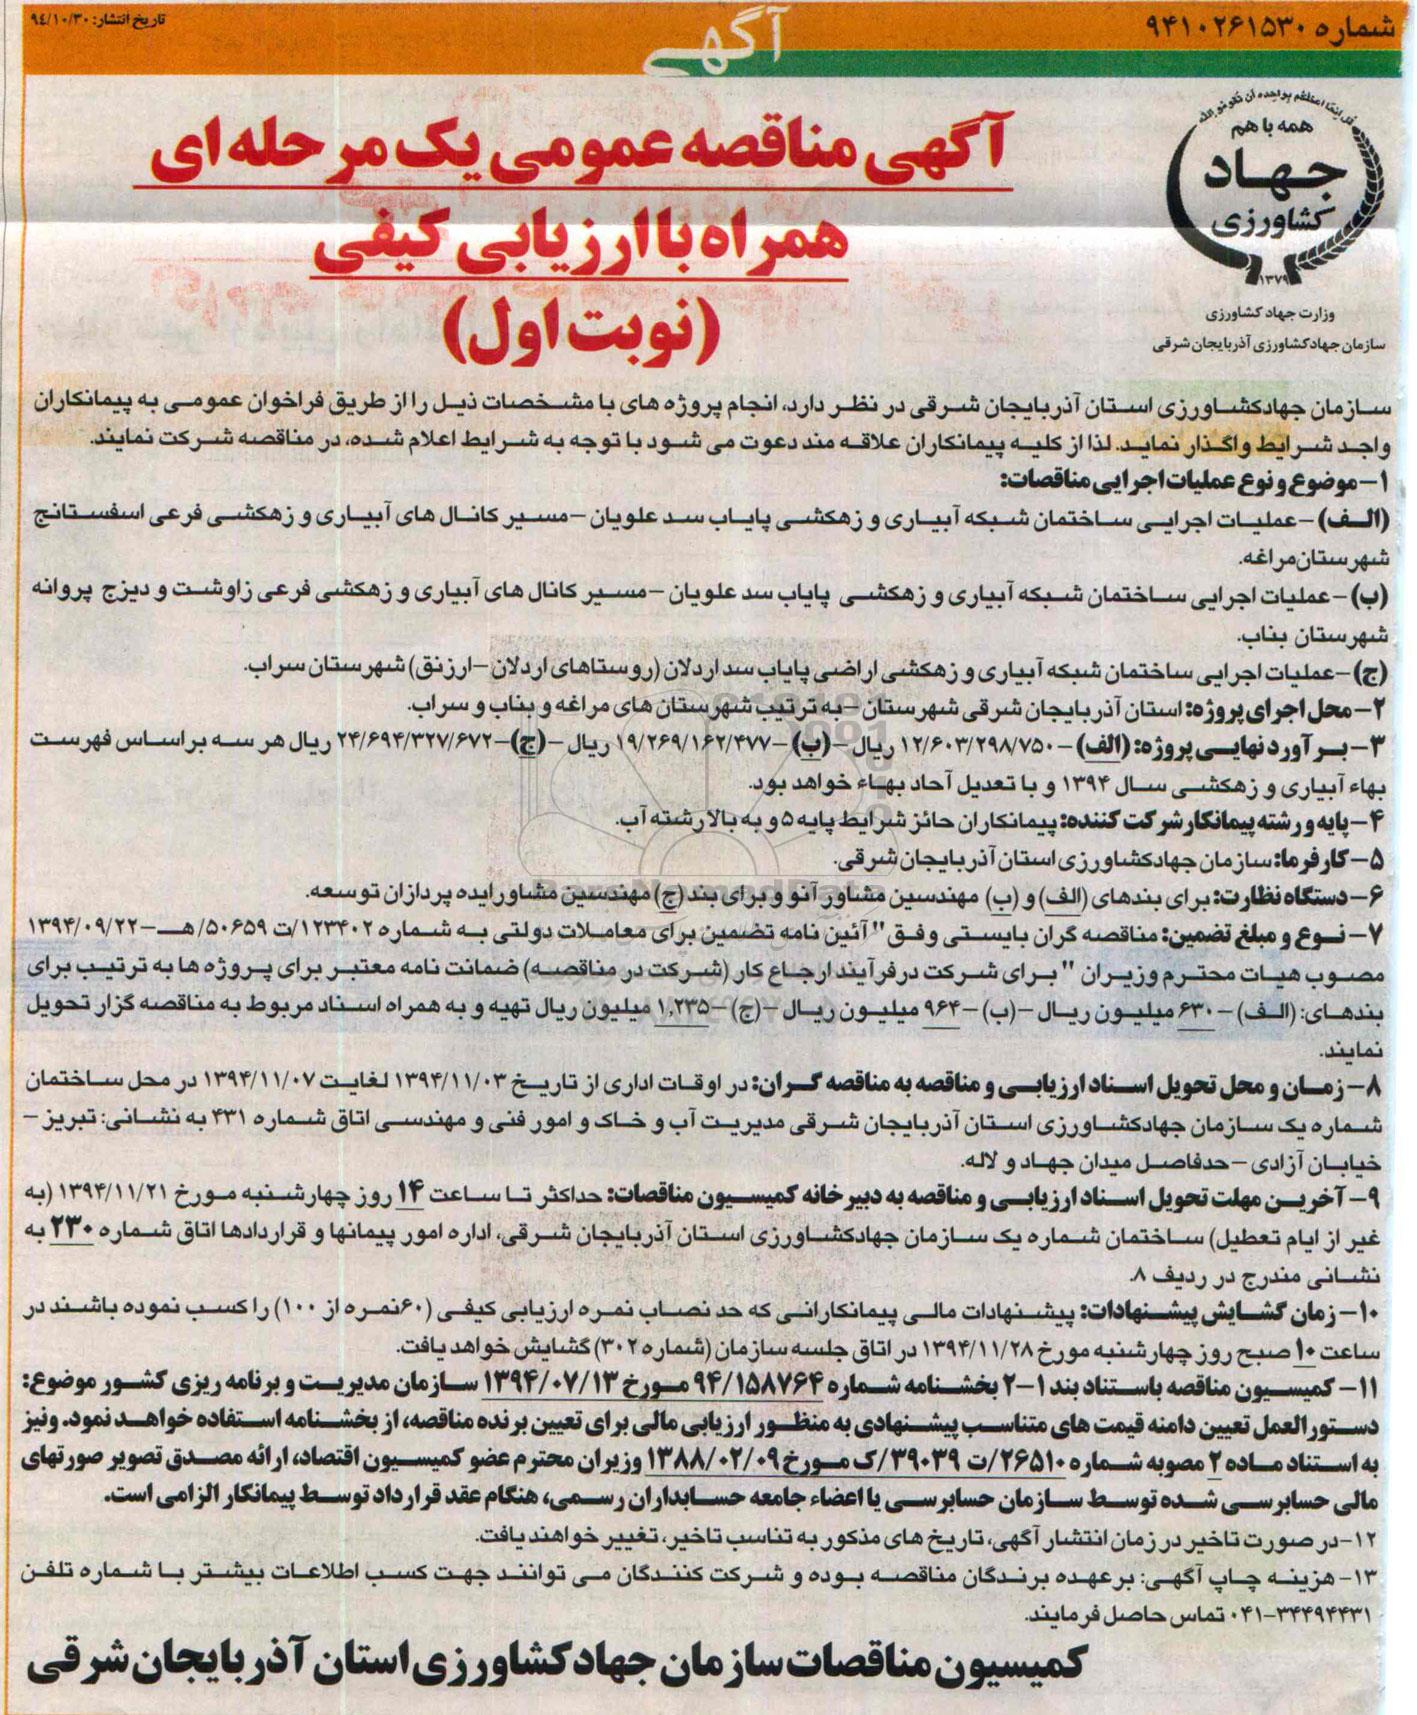 شماره ۹۴۱۰۲۶۱۵۳۰
آگهی
تاریخ انتشار: ۹۴/۱۰/۳۰
قل انما اعظکم بواحده ان تقوموا لله
همه با هم
جهاد
کشاورزی
۱۳۷۹
وزارت جهاد کشاورزی
سازمان جهاد کشاورزی آذربایجان شرقی
آگهی مناقصه عمومی یک مرحله ای
همراه با ارزیابی کیفی
(نوبت اول)
سازمان جهادکشاورزی استان آذربایجان شرقی در نظر دارد، انجام پروژه های با مشخصات ذیل را از طریق فراخوان عمومی به پیمانکاران
واجد شرایط واگذار نماید. لذا از کلیه پیمانکاران علاقه مند دعوت می شود با توجه به شرایط اعلام شده، در مناقصه شرکت نمایند.
۱- موضوع و نوع عملیات اجرایی مناقصات:
(الف) -عملیات اجرایی ساختمان شبکه آبیاری و زهکشی پایاب سد علویان -مسیر کانال های آبیاری و زهکشی فرعی اسفستانج
شهرستان مراغه.
(ب) -عملیات اجرایی ساختمان شبکه آبیاری و زهکشی پایاب سد علویان -مسیر کانال های آبیاری و زهکشی فرعی زاوشت و دیزج پروانه
شهرستان بناب.
(ج) -عملیات اجرایی ساختمان شبکه آبیاری و زهکشی اراضی پایاب سد اردلان (روستاهای اردلان -ارزنق) شهرستان سراب.
۲- محل اجرای پروژه: استان آذربایجان شرقی شهرستان -به ترتیب شهرستان های مراغه و بناب و سراب.
۳- برآورد نهایی پروژه: (الف) -۱۲/۶۰۳/۲۹۸/۷۵۰ ریال -(ب) -۱۹/۲۶۹/۱۶۲/۴۷۷ ریال -(ج)-۲۴/۶۹۴/۳۲۷/۶۷۲ ریال هر سه براساس فهرست
بهاء آبیاری و زهکشی سال ۱۳۹۴ و با تعدیل آحاد بهاء خواهد بود.
۴- پایه و رشته پیمانکار شرکت کننده: پیمانکاران حائز شرایط پایه ۵ و به بالا رشته آب.
۵- کارفرما: سازمان جهادکشاورزی استان آذربایجان شرقی.
۶- دستگاه نظارت: برای بندهای (الف) و (ب) مهندسین مشاور آنو و برای بند (ج) مهندسین مشاور ایده پردازان توسعه.
۷- نوع و مبلغ تضمین: مناقصه گران بایستی وفق "آئین نامه تضمین برای معاملات دولتی به شماره ۱۲۳۴۰۲/ت ۵۰۶۵۹/هـ-۱۳۹۴/۰۹/۲۲
مصوب هیات محترم وزیران " برای شرکت درفرآیند ارجاع کار (شرکت در مناقصه) ضمانت نامه معتبر برای پروژه ها به ترتیب برای
بندهای: (الف) -۶۳۰ میلیون ریال -(ب) -۹۶۴ میلیون ریال -(ج) -۱,۲۳۵ میلیون ریال تهیه و به همراه اسناد مربوط به مناقصه گزار تحویل
نمایند.
۸- زمان و محل تحویل اسناد ارزیابی و مناقصه به مناقصه گران: در اوقات اداری از تاریخ ۱۳۹۴/۱۱/۰۳ لغایت ۱۳۹۴/۱۱/۰۷ در محل ساختمان
شماره یک سازمان جهادکشاورزی استان آذربایجان شرقی مدیریت آب و خاک و امور فنی و مهندسی اتاق شماره ۴۳۱ به نشانی: تبریز -
خیابان آزادی -حدفاصل میدان جهاد و لاله.
۹- آخرین مهلت تحویل اسناد ارزیابی و مناقصه به دبیرخانه کمیسیون مناقصات: حداکثر تا ساعت ۱۴ روز چهارشنبه مورخ ۱۳۹۴/۱۱/۲۱ (به
غیر از ایام تعطیل) ساختمان شماره یک سازمان جهادکشاورزی استان آذربایجان شرقی، اداره امور پیمانها و قراردادها اتاق شماره ۲۳۰ به
نشانی مندرج در ردیف ۸.
۱۰- زمان گشایش پیشنهادات: پیشنهادات مالی پیمانکارانی که حد نصاب نمره ارزیابی کیفی (۶۰نمره از ۱۰۰) را کسب نموده باشند در
ساعت ۱۰ صبح روز چهارشنبه مورخ ۱۳۹۴/۱۱/۲۸ در اتاق جلسه سازمان (شماره ۳۰۲) گشایش خواهد یافت.
۱۱- کمیسیون مناقصه باستناد بند ۱-۲ بخشنامه شماره ۹۴/۱۵۸۷۶۴ مورخ ۱۳۹۴/۰۷/۱۳ سازمان مدیریت و برنامه ریزی کشور موضوع:
دستورالعمل تعیین دامنه قیمت های متناسب پیشنهادی به منظور ارزیابی مالی برای تعیین برنده مناقصه، از بخشنامه استفاده خواهد نمود. ونیز
به استناد ماده ۲ مصوبه شماره ۲۶۵۱۰/ت ۳۹۰۳۹/ک مورخ ۱۳۸۸/۰۲/۰۹ وزیران محترم عضو کمیسیون اقتصاد، ارائه مصدق تصویر صورتهای
مالی حسابرسی شده توسط سازمان حسابرسی یا اعضاء جامعه حسابداران رسمی، هنگام عقد قرارداد توسط پیمانکار الزامی است.
۱۲-در صورت تاخیر در زمان انتشار آگهی، تاریخ های مذکور به تناسب تاخیر، تغییر خواهند یافت.
۱۳- هزینه چاپ آگهی: برعهده برندگان مناقصه بوده و شرکت کنندگان می توانند جهت کسب اطلاعات بیشتر با شماره تلفن
۰۴۱-۳۴۴۹۴۴۳۱ تماس حاصل فرمایند.
کمیسیون مناقصات سازمان جهاد کشاورزی استان آذربایجان شرقی